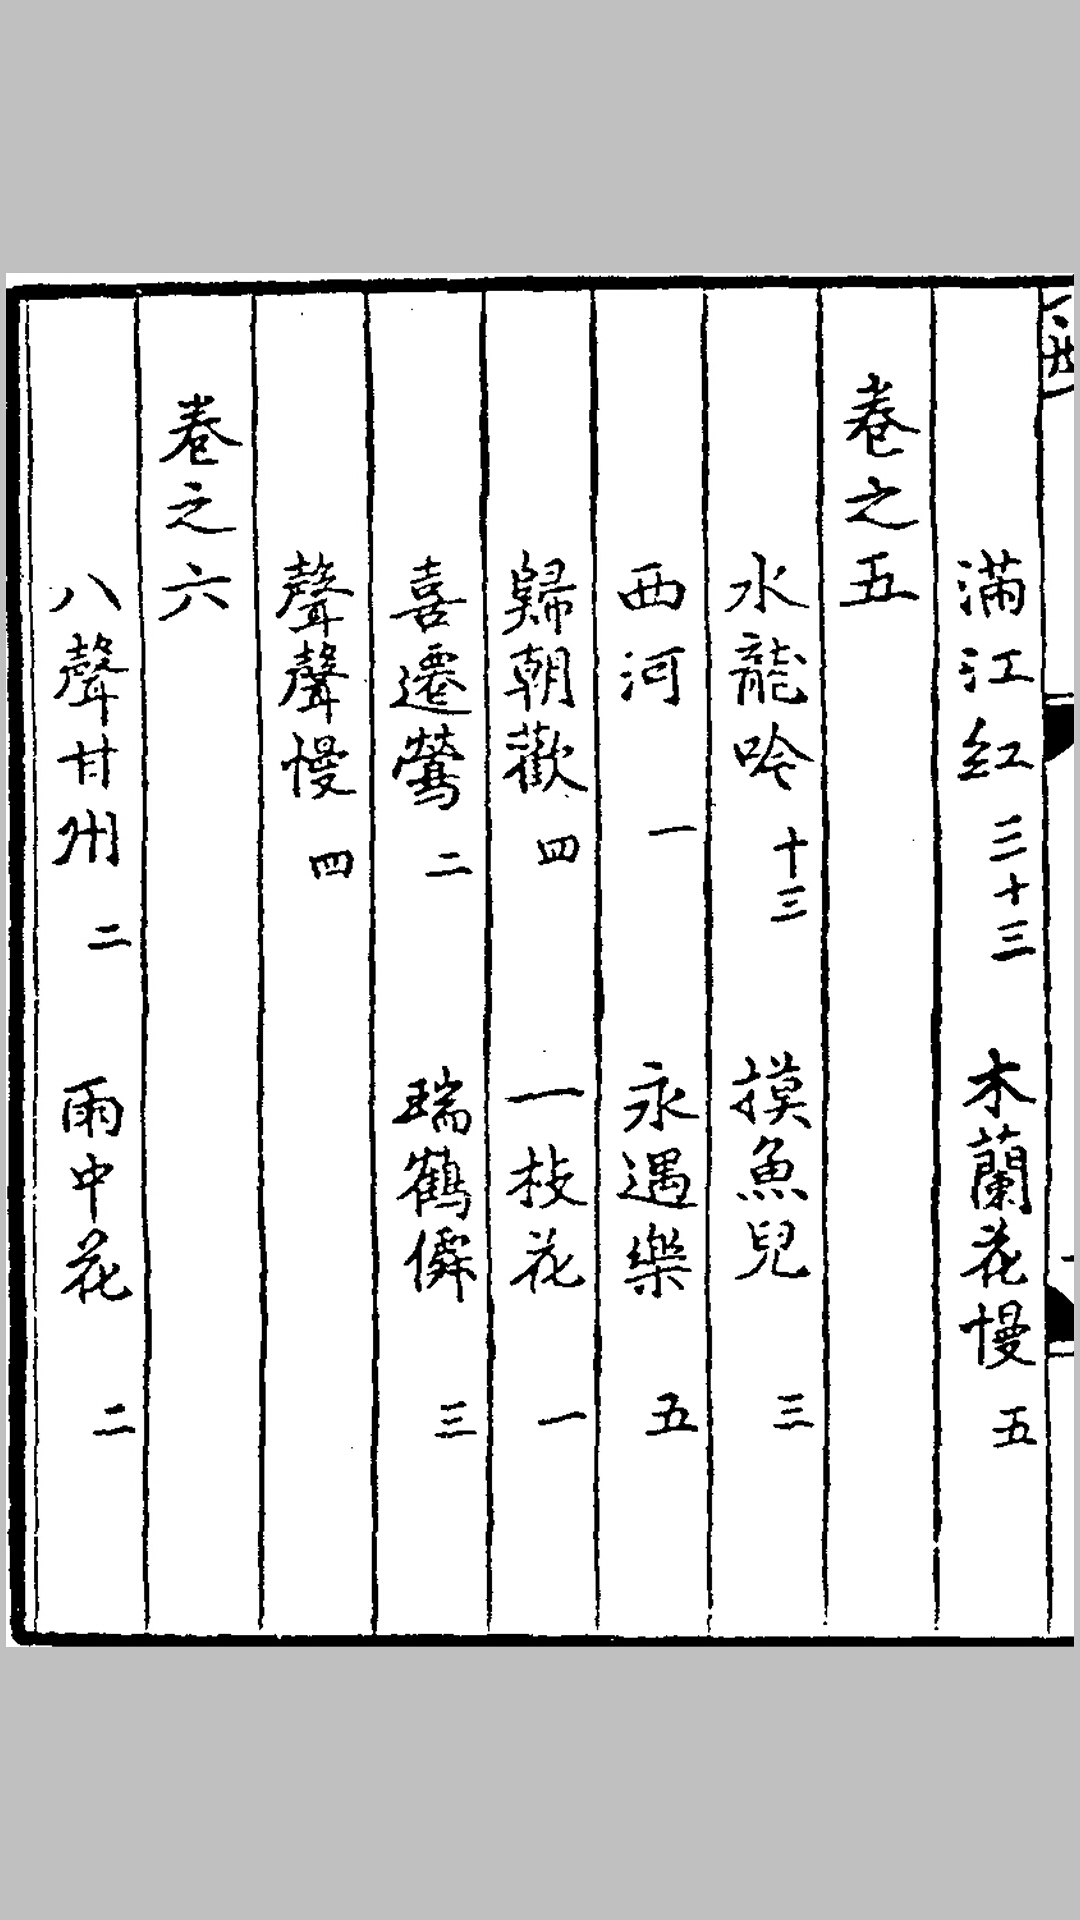 滿江紅 三十三 木蘭花慢 五
卷之五
水龍吟 十三 摸魚兒 三
西河 一 永遇樂 五
歸朝歡 四 一枝花 一
喜遷鶯 二 瑞鶴僊 三
聲聲慢 四
卷之六
八聲甘州 二 雨中花 二